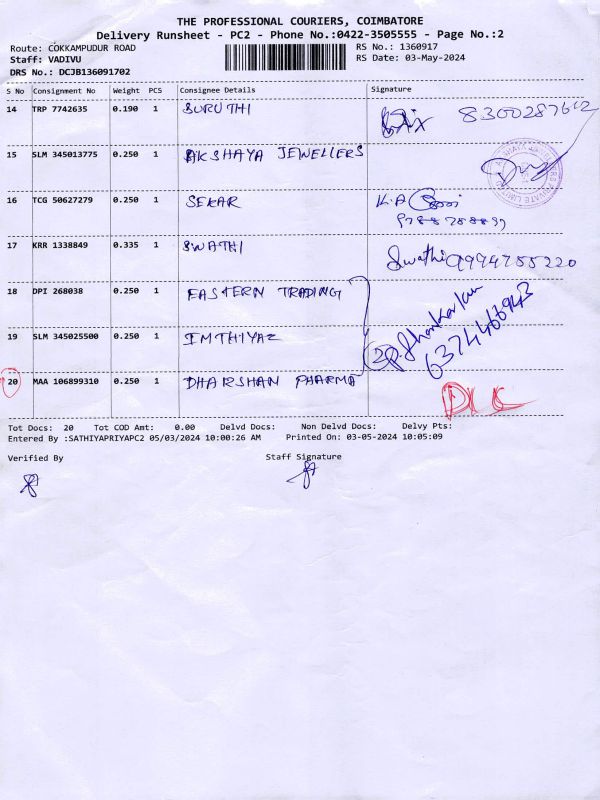 THE PROFESSIONAL COURIERS, COIMBATORE
Delivery Runsheet - PC2 - Phone No.:0422-3505555 - Page No.:2
Route: COKKAMPUDUR ROAD RS No.: 1360917
Staff: VADIVU RS Date: 03-May-2024
DRS No.: DCJB136091702
S No Consignment No Weight PCS Consignee Details Signature
14 TRP 7742635 0.190 1 SURUTHI
15 SLM 345013775 0.250 1 AKSHAYA JEWELLERS
16 TCG 50627279 0.250 1 SEKAR K.A
17 KRR 1338849 0.335 1 SWATHI Swathi 9994755220
18 DPI 268038 0.250 1 EASTERN TRADING
19 SLM 345025500 0.250 1 IMTHIYAZ
20 MAA 106899310 0.250 1 DHARSHAN PHARMA
Tot Docs: 20 Tot COD Amt: 0.00 Delvd Docs: Non Delvd Docs: Delvy Pts:
Entered By :SATHIYAPRIYAPC2 05/03/2024 10:00:26 AM Printed On: 03-05-2024 10:05:09
Verified By Staff Signature